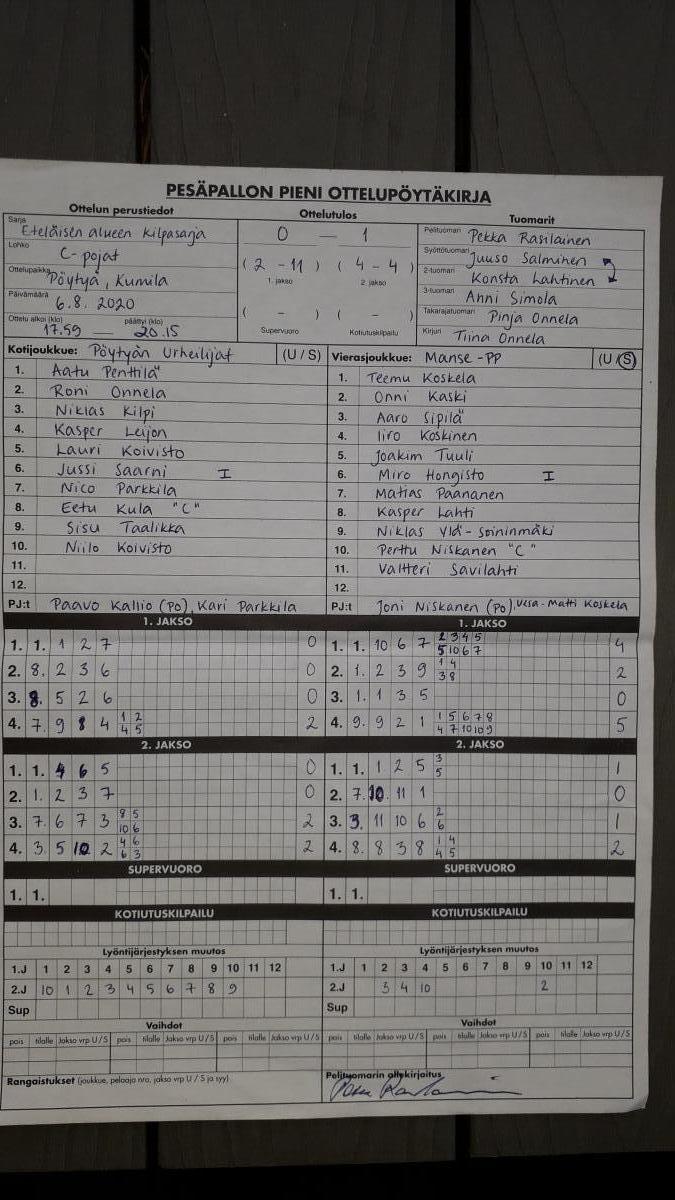 PESÄPALLON PIENI OTTELUPÖYTÄKIRJA
Ottelun perustiedot
Sarja Eteläisen alueen kilpasarja
Lohko C-pojat
Ottelupaikka Pöytyä, Kumila
Päivämäärä 6.8.2020
Ottelu alkoi (klo) 17.59 — päättyi (klo) 20.15
Ottelutulos
0 — 1
( 2 - 11 ) ( 4 - 4 )
1. jakso 2. jakso
( - ) ( - )
Supervuoro Kotiutuskilpailu
Tuomarit
Pelituomari Pekka Rasilainen
Syöttötuomari Juuso Salminen
2-tuomari Konsta Lahtinen
3-tuomari Anni Simola
Takarajatuomari Pinja Onnela
Kirjuri Tiina Onnela
Kotijoukkue: Pöytyän Urheilijat (U / S)
1. Aatu Penttilä
2. Roni Onnela
3. Niklas Kilpi
4. Kasper Leijon
5. Lauri Koivisto
6. Jussi Saarni I
7. Nico Parkkila
8. Eetu Kula "C"
9. Sisu Taalikka
10. Niilo Koivisto
11.
12.
PJ:t Paavo Kallio (PO), Kari Parkkila
Vierasjoukkue: Manse-PP (U / S)
1. Teemu Koskela
2. Onni Kaski
3. Aaro Sipilä
4. Iiro Koskinen
5. Joakim Tuuli
6. Miro Hongisto I
7. Matias Paananen
8. Kasper Lahti
9. Niklas Ylä-Soininmäki
10. Perttu Niskanen "C"
11. Valtteri Savilahti
12.
PJ:t Joni Niskanen (PO), Vesa-Matti Koskela
1. JAKSO
1. 1. 1 2 7 0
2. 8. 2 3 6 0
3. 8. 5 2 6 0
4. 7. 9 8 4 1 2 2
4 5
2. JAKSO
1. 1. 4 6 5 0
2. 1. 2 3 7 0
3. 7. 6 7 3 8 5 2
10 6
4. 3. 5 10 2 4 6 2
6 3
SUPERVUORO
1. 1.
KOTIUTUSKILPAILU
1. JAKSO
1. 1. 10 6 7 2 3 4 5 4
5 10 6 7
2. 1. 2 3 9 1 4 2
3 8
3. 1. 1 3 5 0
4. 9. 9 2 1 1 5 6 7 8 5
4 7 10 10 9
2. JAKSO
1. 1. 1 2 5 3 1
5
2. 7. 10. 11 1 0
3. 3. 11 10 6 2 1
6
4. 8. 8 3 8 1 4 2
4 5
SUPERVUORO
1. 1.
KOTIUTUSKILPAILU
Lyöntijärjestyksen muutos
1.J 1 2 3 4 5 6 7 8 9 10 11 12
2.J 10 1 2 3 4 5 6 7 8 9
Sup
Vaihdot
pois tilalle Jakso vrp U / S pois tilalle Jakso vrp U / S pois tilalle Jakso vrp U / S
Rangaistukset (joukkue, pelaaja nro, jakso vrp U / S ja syy)
Lyöntijärjestyksen muutos
1.J 1 2 3 4 5 6 7 8 9 10 11 12
2.J 3 4 10 2
Sup
Vaihdot
pois tilalle Jakso vrp U / S pois tilalle Jakso vrp U / S pois tilalle Jakso vrp U / S
Pelituomarin allekirjoitus